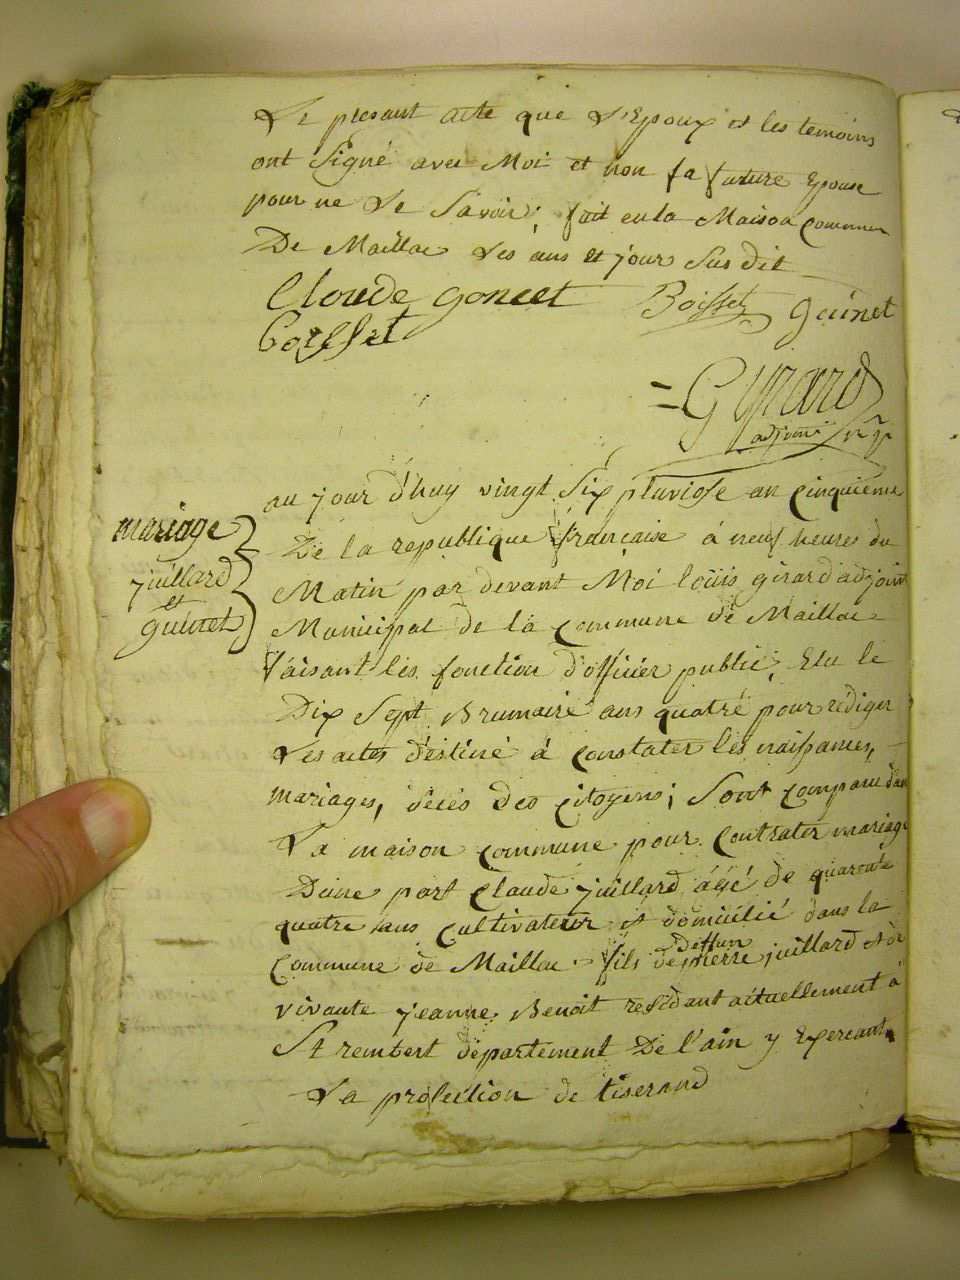 Le presant acte que L'Epoux et les temoins
ont signé avec Moi et non sa future Epouse
pour ne Le savoir; fait en la Maison commune
De Maillac Les ans et jour susdit
Claude goncet Boisset guinet
Boisset
Girard
adjoint
au jour d'huy vingt six pluviose an cinquieme
De la republique française à neuf heures du
Matin par devant Moi loüis girard adjoint
Municipal de la commune de Maillac
faisant les fonction d'officier public, Elu le
Dix sept Brumaire ans quatre pour rédiger
Les actes déstiné à constater les naissances,
mariages, décés des citoyens; sont comparu dans
La maison commune pour contrater mariage
Dune part Claude juillard, agé de quarante
quatre ans cultivateur et domicilié dans la
deffun
commune de Maillac fils de pierre juillard et de
vivante jeanne Benoit residant actuellement à
St rembert département De l'ain y Exercant
La profection de tiserand
mariage
juillard
et
guinet